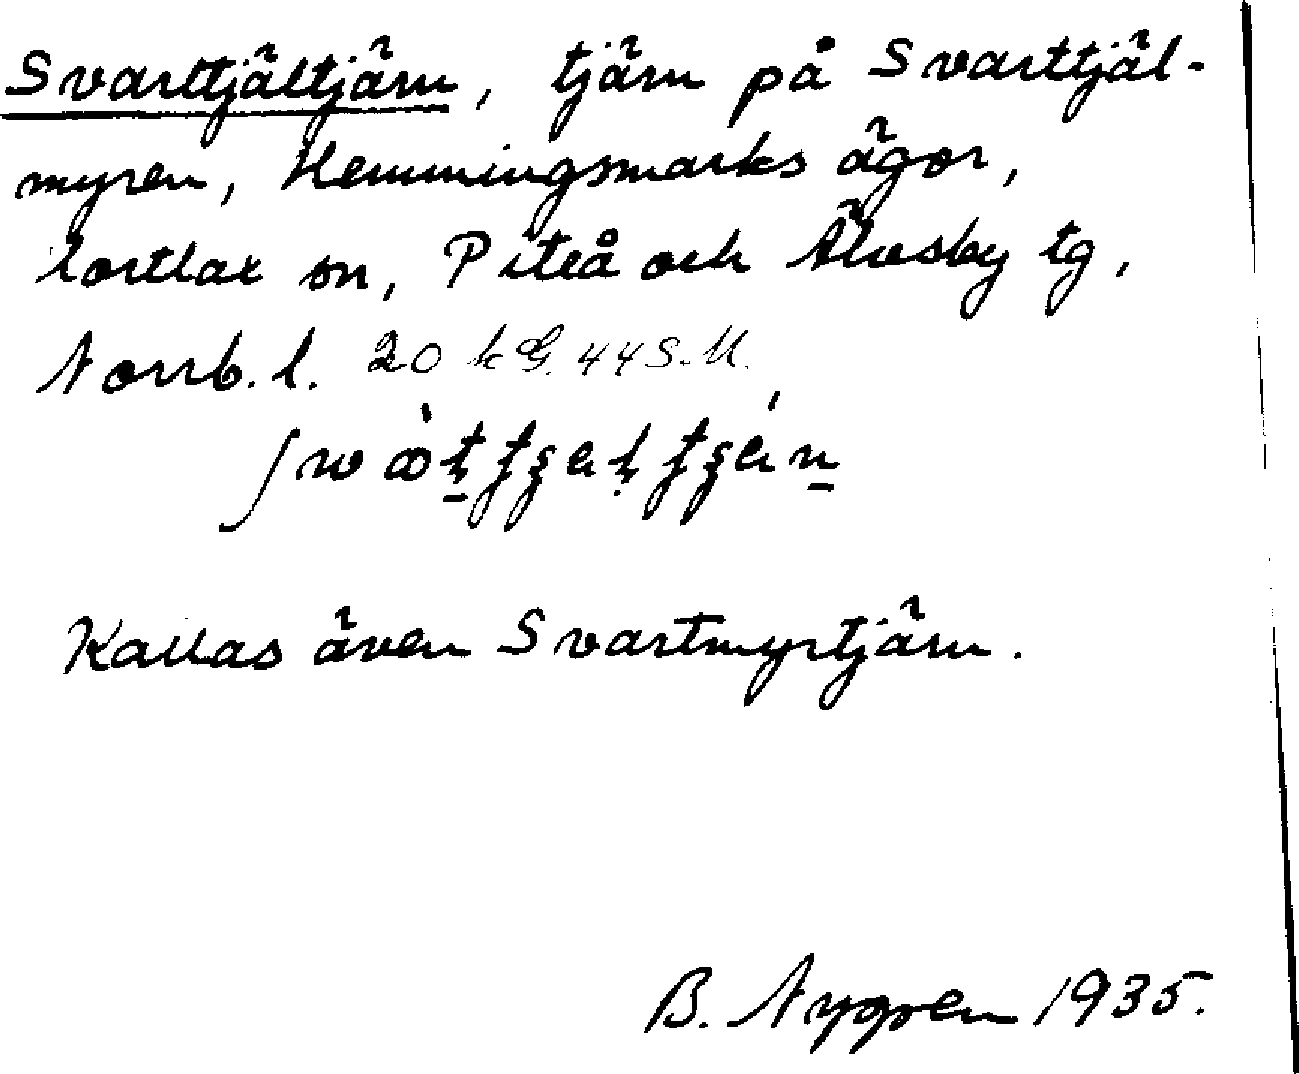 Svarttjältjärn, tjärn på Svarttjäl-
myren, Hemmingsmarks ägor,
Hortlax sn, Piteå och Älvsby tg,
Norrb. l. 20 k G. 44 S.M.
Kallas även Svartmyrtjärn.
B. Nygren 1935.